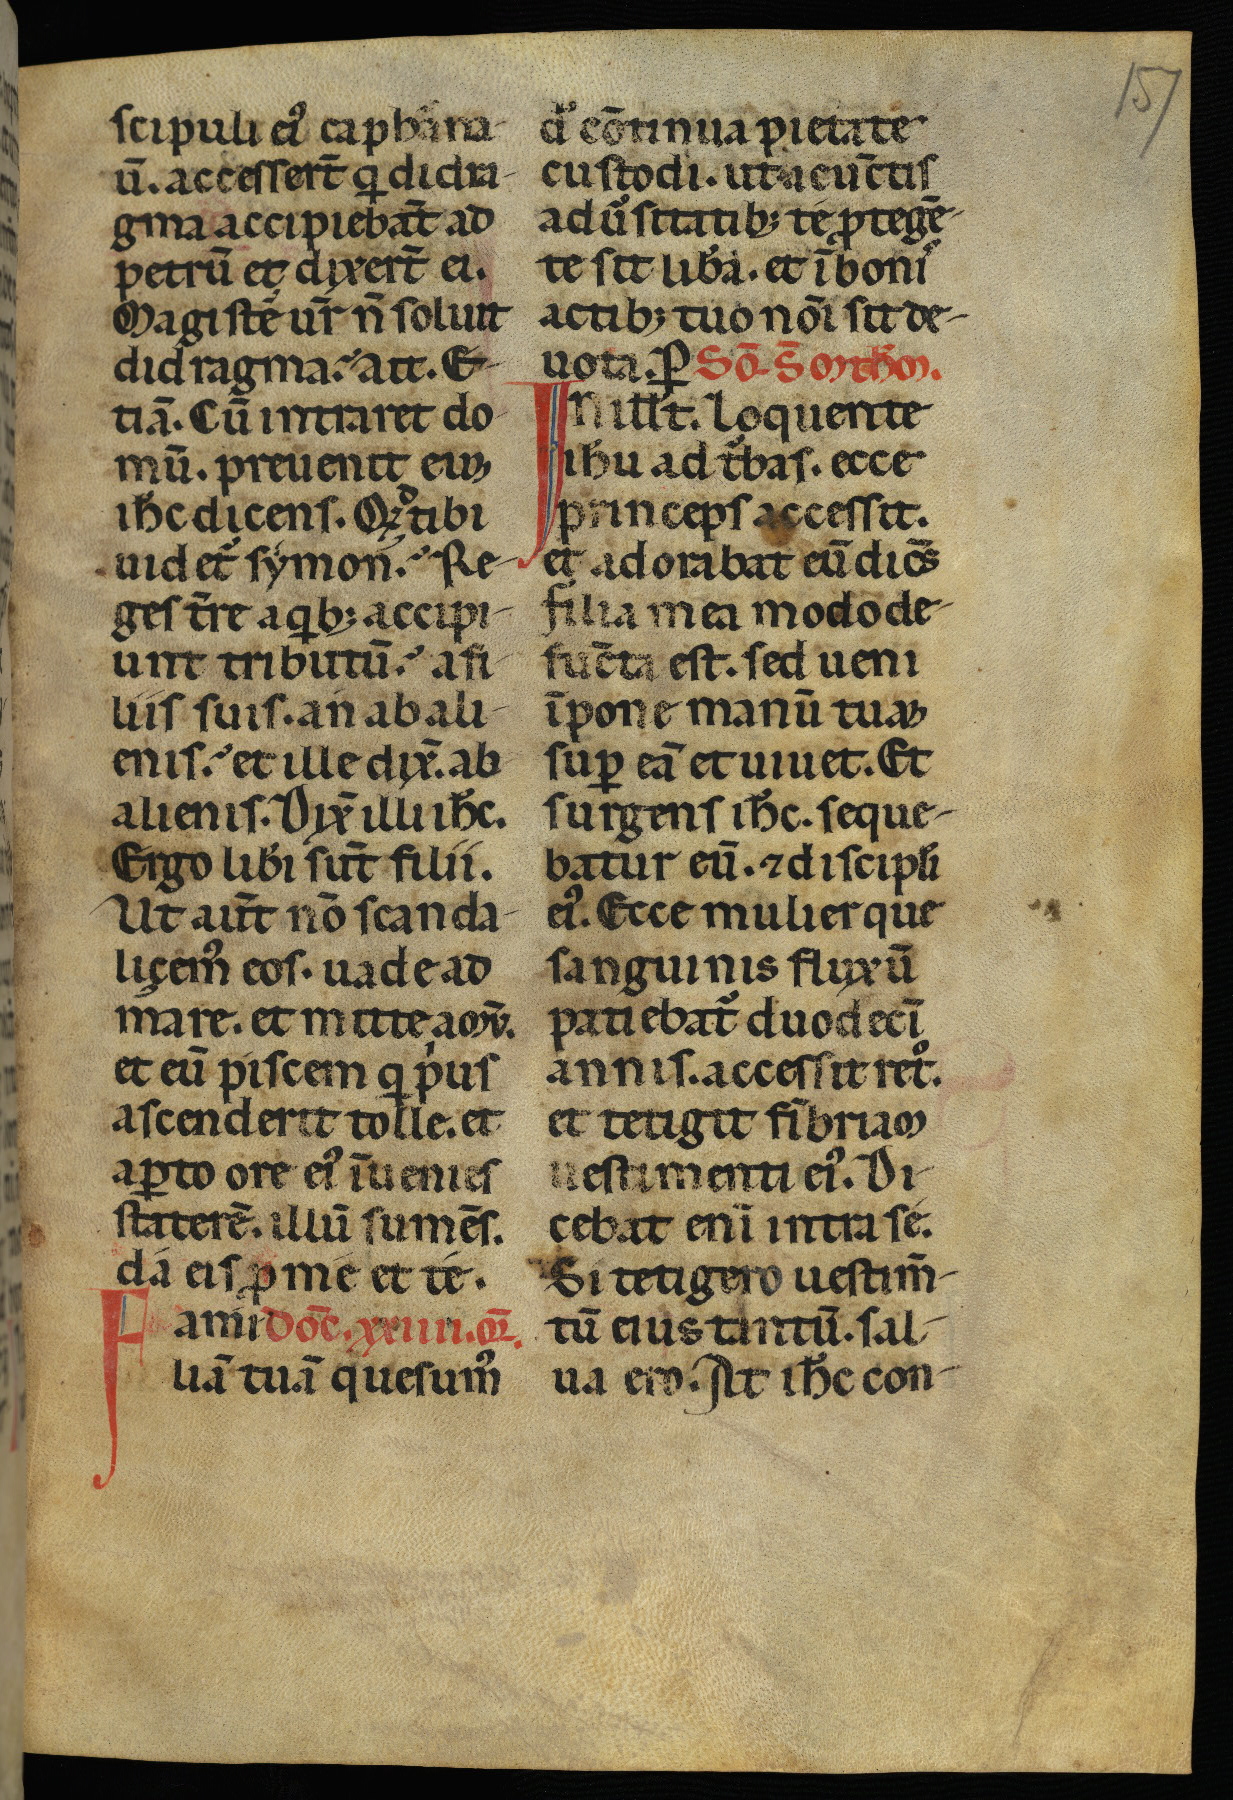 157
scipuli ei⁹ capharna-
ū. accessert̄ q̇ didra-
gma accipiebāt ad
petrū et dixert̄ ei.
Magistẽ ur̄ n̄ soluit
didragma.᷎ Ait. E-
tiā. Cū intraret do
mū. preuenit eum
ih̄c dicens. Qͥꝛ̊ tibi
uidet᷑ symon.᷎ Re-
ges t̄re a qͥbꝫ accipi-
unt tributū.᷎ a fi-
liis suis. an ab ali-
enis.᷎ et ille dix̄. ab
alienis. Dix̄ illi ih̄c.
Ergo lib̄i sūt filii.
Ut aūt nō scanda-
licem⁹ eos. uade ad
mare. et mitte amū.
et eū piscem q̇ pͥus
ascenderit tolle. et
aꝑto ore ei⁹ īuenies
staterē. illū sumēs.
da eis ꝓ me et te.
Fami Doc̄. xxiiii. or̄.
liā tuā quesum⁹
d᷑ cōtinua pietate
custodi. ut a cūctis
adu᷑sitatibꝫ te ꝓtegē-
te sit lib̄a. et ī boni⁹
actibꝫ tuo nōi sit de-
uota. P̲ Sō. S. mth̄m.
In ill̄t. Loquente
ih̄u ad t᷑bas. ecce
princeps accessit.
et adorabat eū dicēs
filia mea modo de-
fūcta est. sed ueni
īpone manū tuam
suꝑ eā et uiuet. Et
surgens ih̄c. seque-
batur eū. ⁊ discipl̄i
ei⁹. Ecce mulier que
sanguinis fluxū
patiebat᷑ duodecī
annis. accessit ret⁰.
et tetigit fībriam
uestimenti ei⁹. Di-
cebat enī intra se.
Si tetigero uestim̄-
tū eius tantū. sal-
ua ero. At ih̄c con-